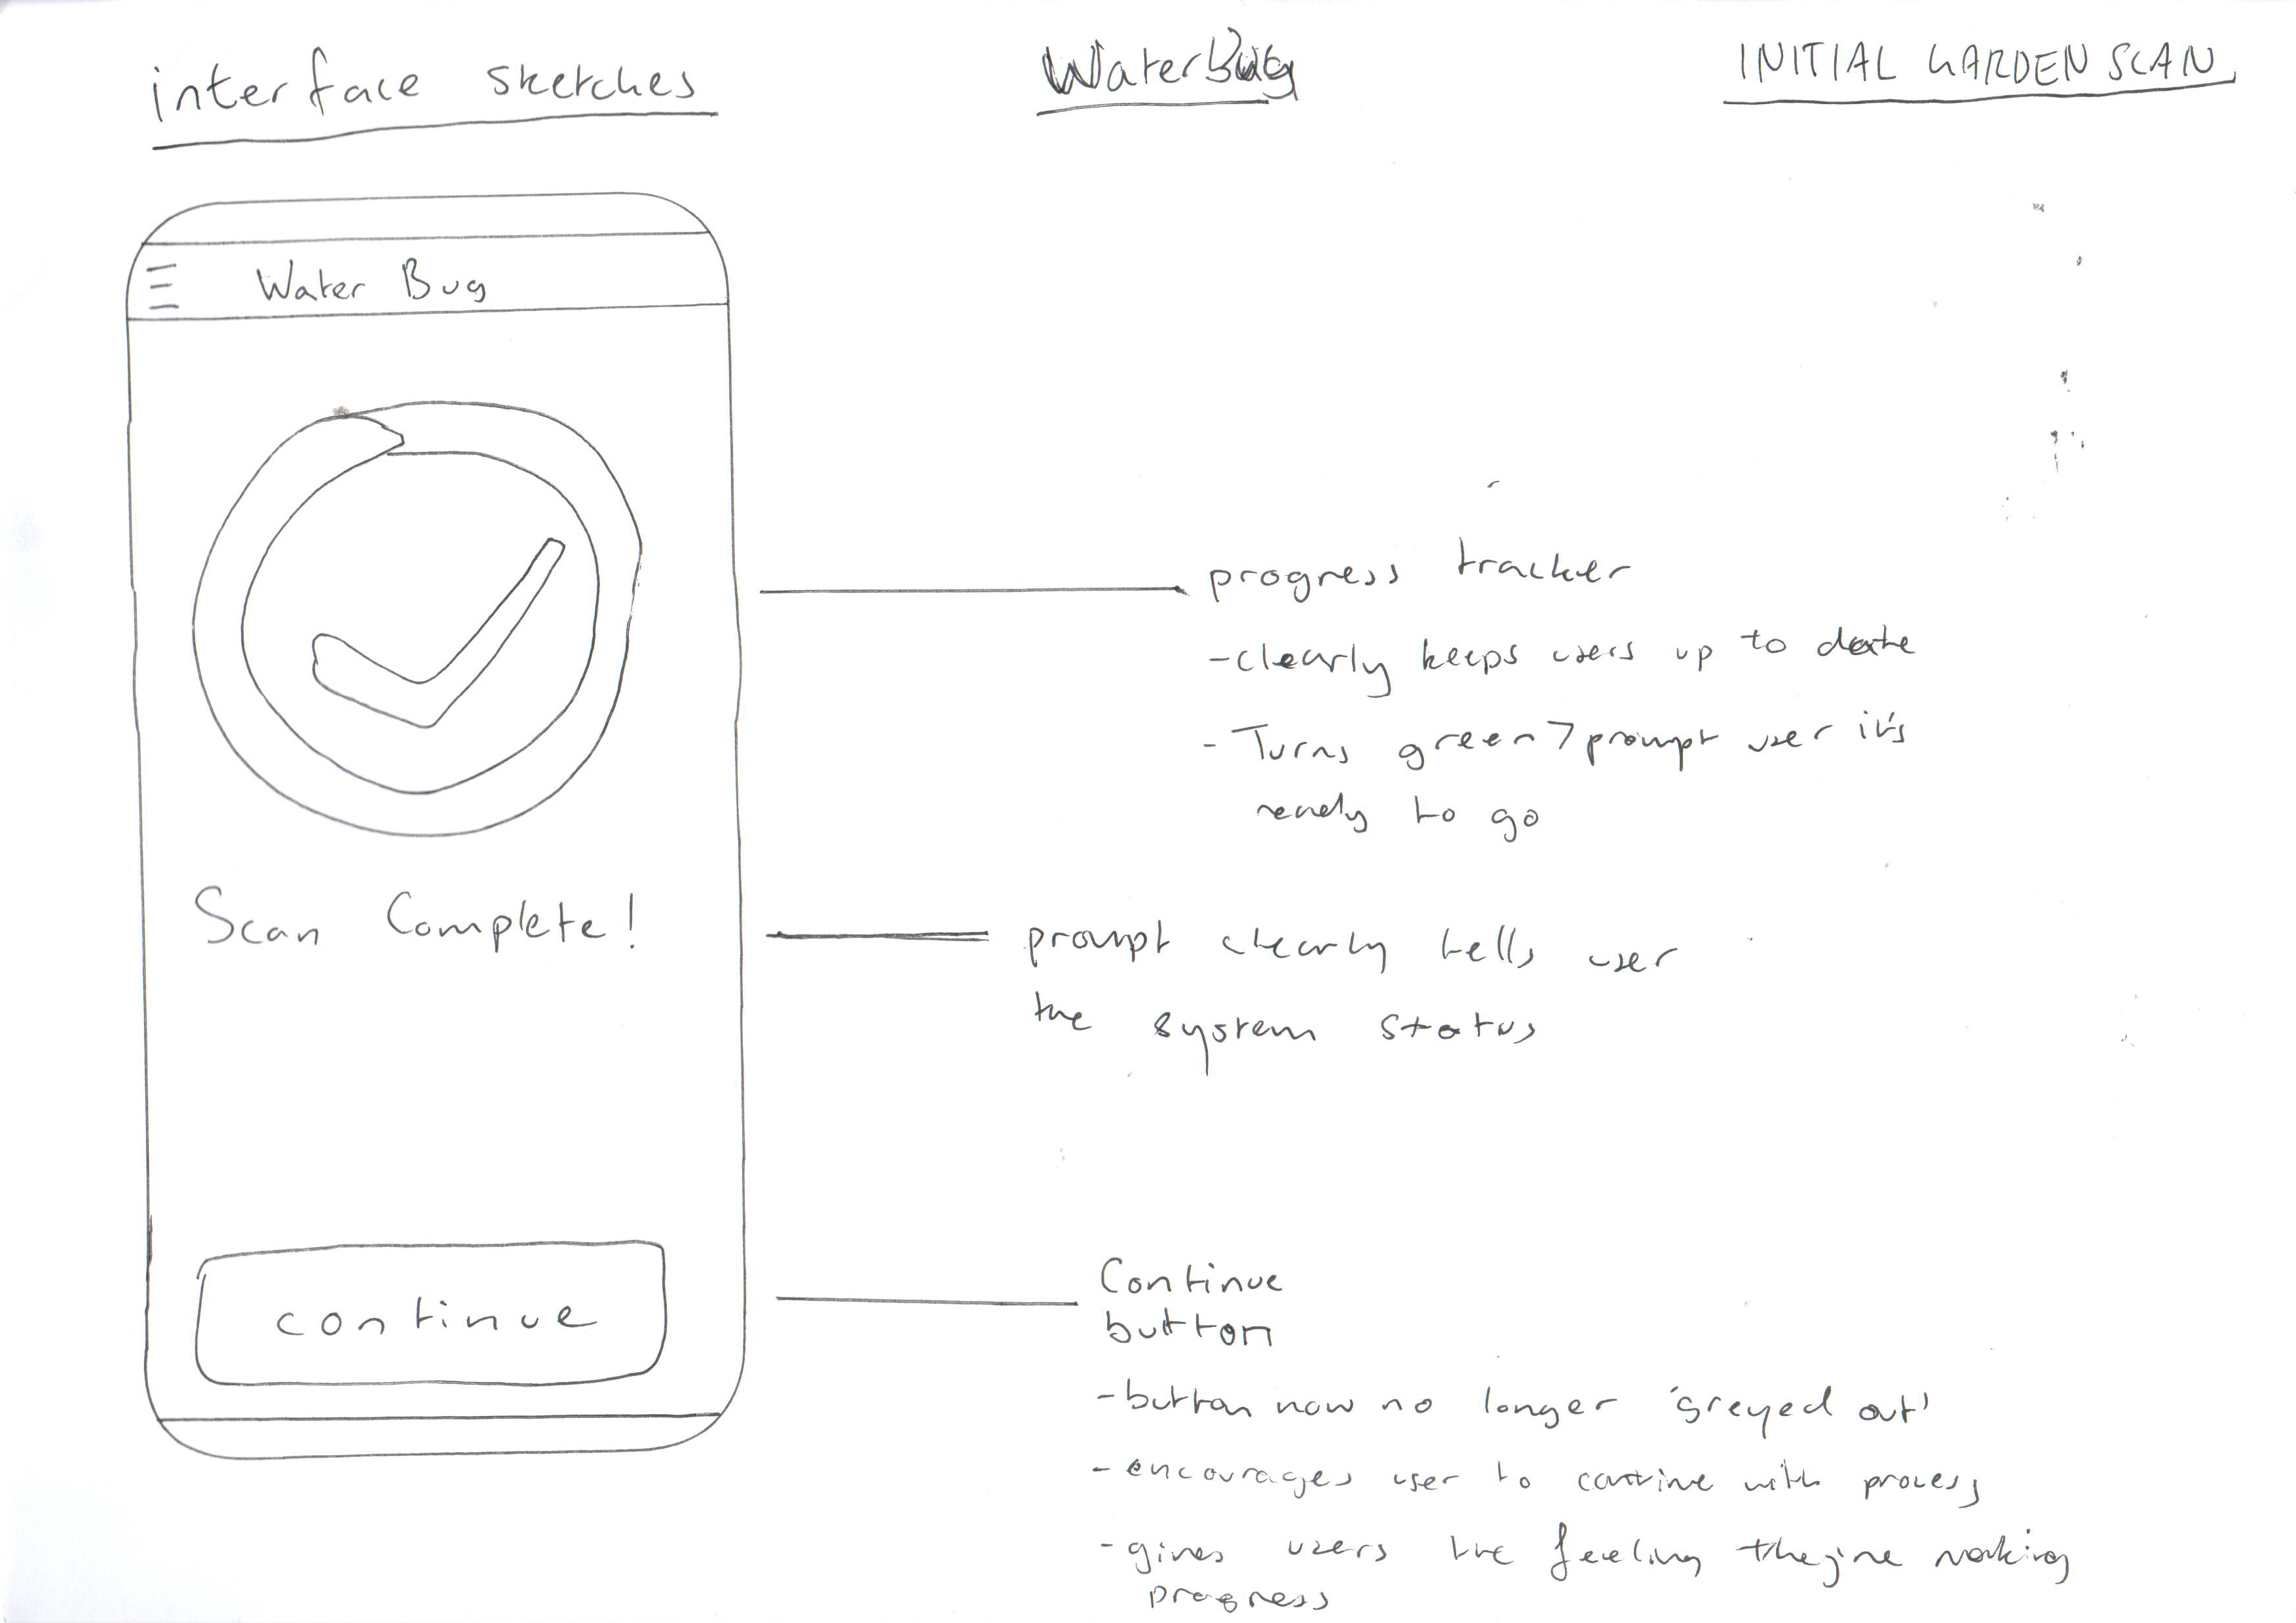 interface sketches
WaterBug
INITIAL GARDEN SCAN
Water Bug
progress tracker
-clearly keeps users up to date
- Turns green > prompt user it's
ready to go
Scan Complete!
prompt clearly tells user
the system status
continue
Continue
button
-button now no longer 'greyed out'
- encourages user to continue with process
- gives users the feeling they're making
progress